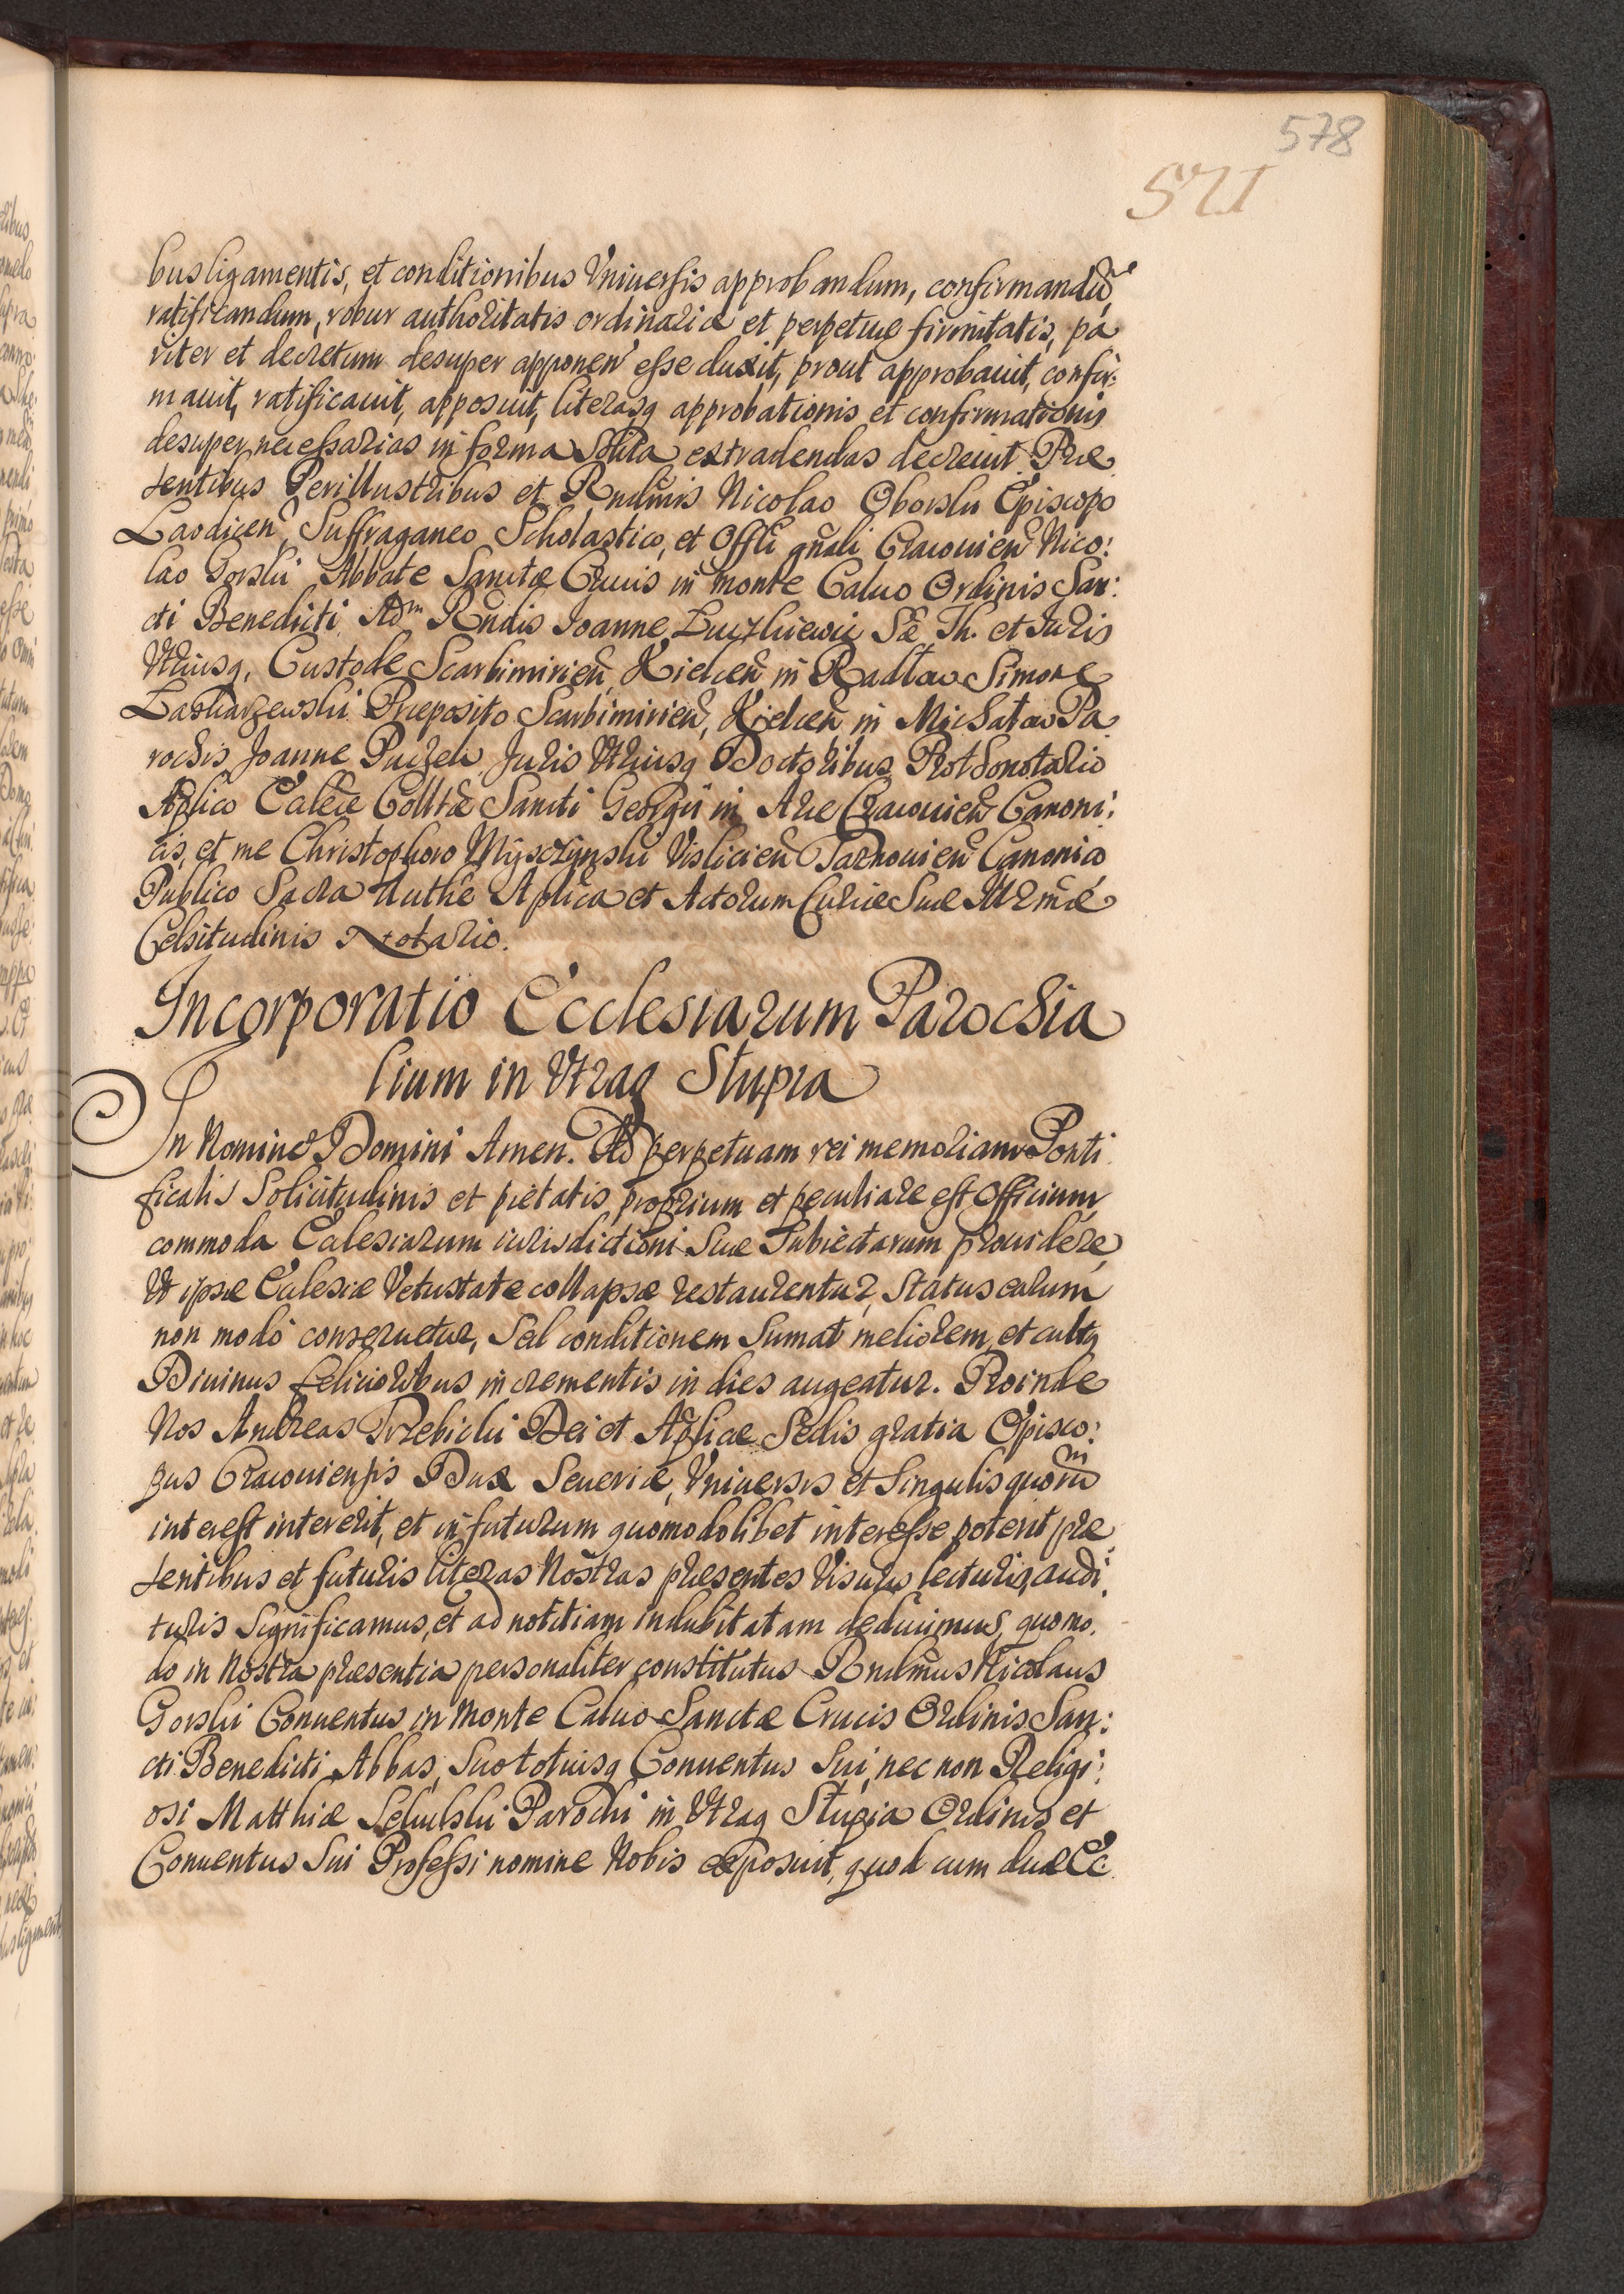 578
571
bus ligamentis, et conditionibus Vniuersis approbandum, confirmandũ,
ratificandum, robur authoritatis ordinariæ et perpetuæ firmitatis, pa
riter et decretum desuper apponen̄ esse duxit, prout approbauit, confir:
mauit, ratificauit, apposuit, literasq approbationis et confirmationis
desuper necessarias in forma Solita extradendas decreuit. Præ
sentibus Perillustribus et Rndm̃is Nicolao Oborski Episcopo
Laodicen̄, Suffraganeo Scholastico, et Offłi gñali Cracouien̄ Nico:
lao Gorski Abbate Sanctæ Crucis in monte Caluo Ordinis San:
cti Benedicti Adm Rndis Joanne Luczkiewic Sæ Th. et Juris
Vtriusq, Custode Scarbimirien̄, Kielcen̄ in Radłow Simone
Laskarzewski Præposito Scarbimirien̄, Kielcen̄ in Michałow Pa
rochis Joanne Puczek Juris Vtriusq Doctoribus Prothonotario
Aplico Eccłiæ Colltæ Sancti Georgii in Arce Cracouien̄ Canoni:
cis, et me Christophoro Mysczynski Vislicien̄ Tarnouien̄ Canonico
Publico Sacra Authẽ Aplica et Actorum Curiæ Suæ Illrm̃æ
Celsitudinis Notario.
Incorporatio Ecclesiarum Parochia
lium in Vtraq Słupia
In Nomine Domini Amen. Ad perpetuam rei memoriam Ponti
ficalis Solicitudinis et pietatis proprium et peculiare est Officium,
commoda Ecclesiarum iurisdictioni Suæ Subiectarum prouidere,
Vt ipsæ Ecclesiæ Vetustate collapsæ restaurentur, Status earum
non modo conseruetur, Sed conditionem Sumat meliorem, et cultq
Diuinus felicioribus incrementis in dies augeatur. Proinde
Nos Andreas Trzebicki Dei et Aplicæ Sedis gratia Episco:
pus Cracouiensis Dux Seueriæ, Vniuersis et Singulis quorũ
interest intererit, et in futurum quomodolibet interesse poterit præ
sentibus et futuris literas Nostras præsentes Visuris lecturis, audi:
turis Significamus, et ad notitiam indubitatam deducimus, quomo.
do in Nostra præsentia personaliter constitutus Rndm̃us Nicolaus
Gorski Conuentus in Monte Caluo Sanctæ Crucis Ordinis San:
cti Benedicti Abbas, Suo totiusq Conuentus Sui, nec non Religi:
osi Matthiæ Parochi in Vtraq Słupia Ordinis et
Conuentus Sui Professi nomine Nobis exposuit, quod cum duæ Ec.